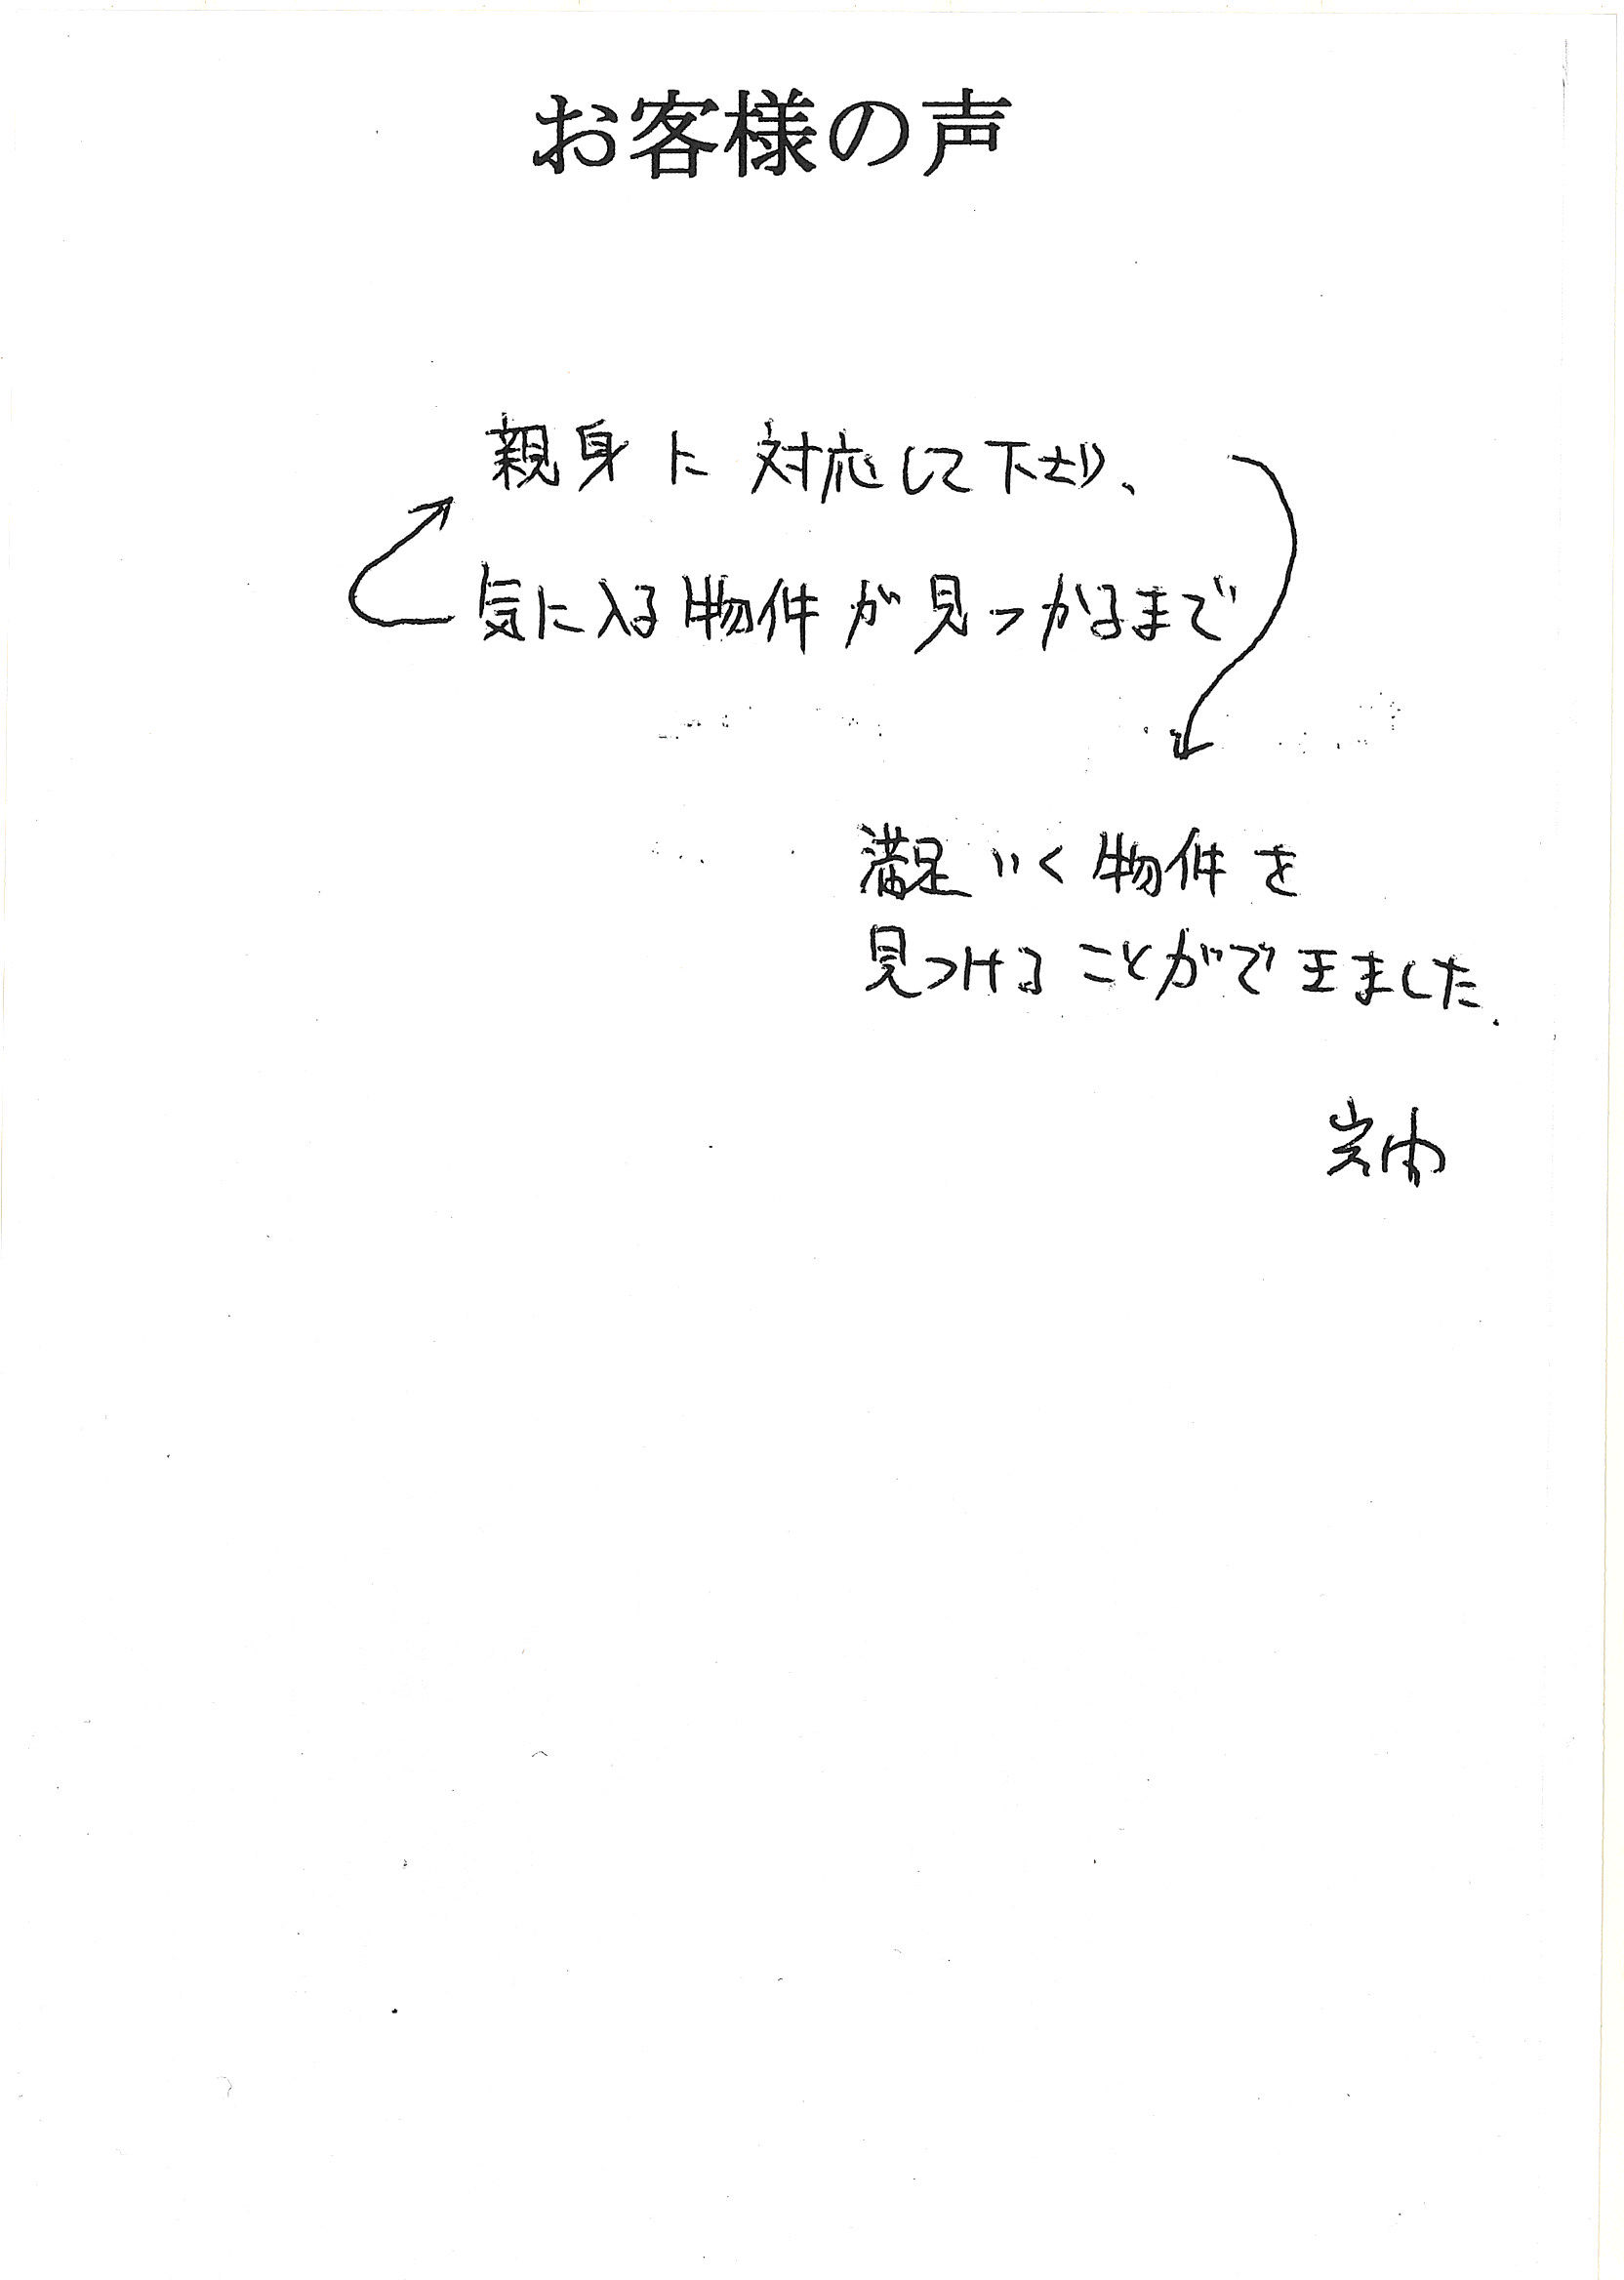 お客様の声
親身に対応して下さり、
気に入る物件が見つかるまで
満足いく物件を
見つけることができました.